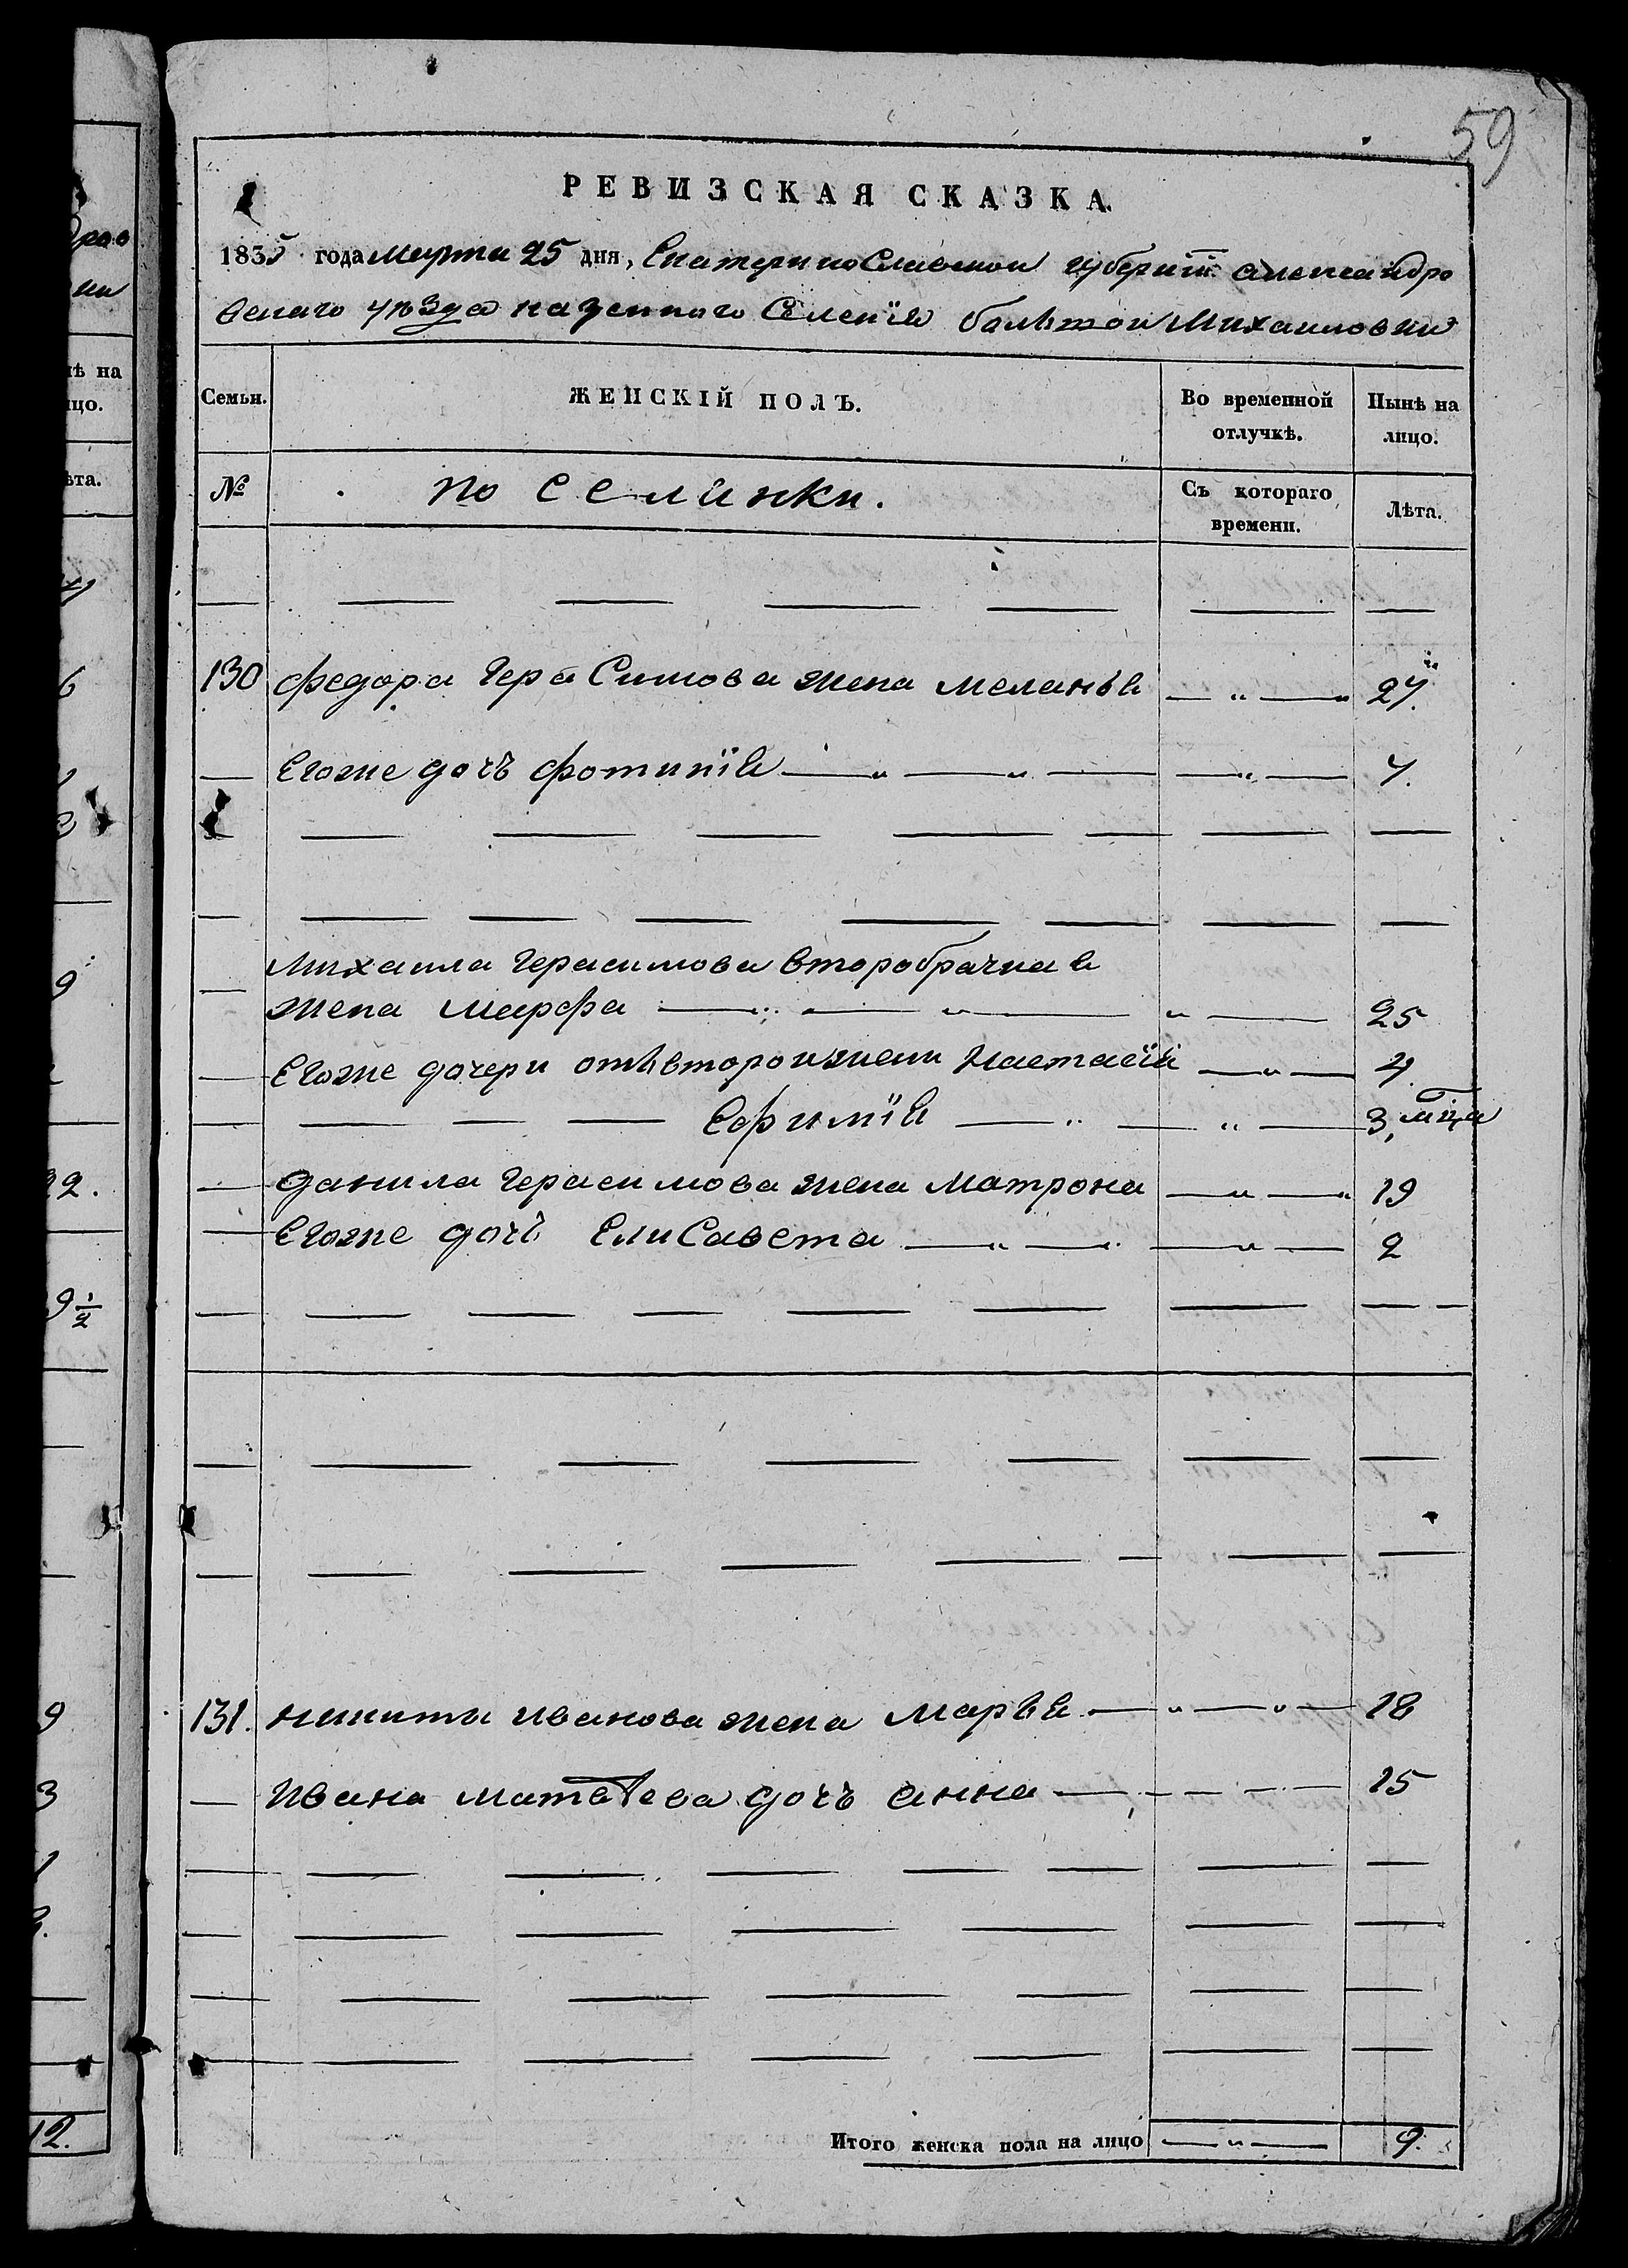 59
РЕВИЗСКАЯ СКАЗКА.
1835 года марта 25 дня, Екатеринославской губернiи Александро
вскаго уѣзда казенного Селенiя большой Михайловки
Семьи. ЖЕНСКIЙ ПОЛЪ. Во временной отлучкѣ. Нынѣ на лицо.
№ поселянки. Съ котораго времени. Лѣта.
130 Федора Герасимова жена Меланья — „ — „ 27.
— Егоже дочь Фотинiя — „ — „ — — „ — 7.
Михаила Герасимова второбрачная
жена Марфа — „ — „ — „ — 25
— Егоже дочери отъ второй жены Настасiя — „ — 4.
— — — — Ефимiя — „ — „ — 3, мца
— Данила Герасимова жена Матрона — „ — „ 19
— Егоже дочь Елисавета — „ — „ — „ — 2
131. Никиты Иванова жена Марья — „ — „ — 18
— Ивана Матвѣева дочь Анна — — — — 15
Итого женска пола на лицо — „ — 9.
драо
ки
нѣ на
ицо.
ѣта.
6
9
22.
9 1/2
9
3
12.